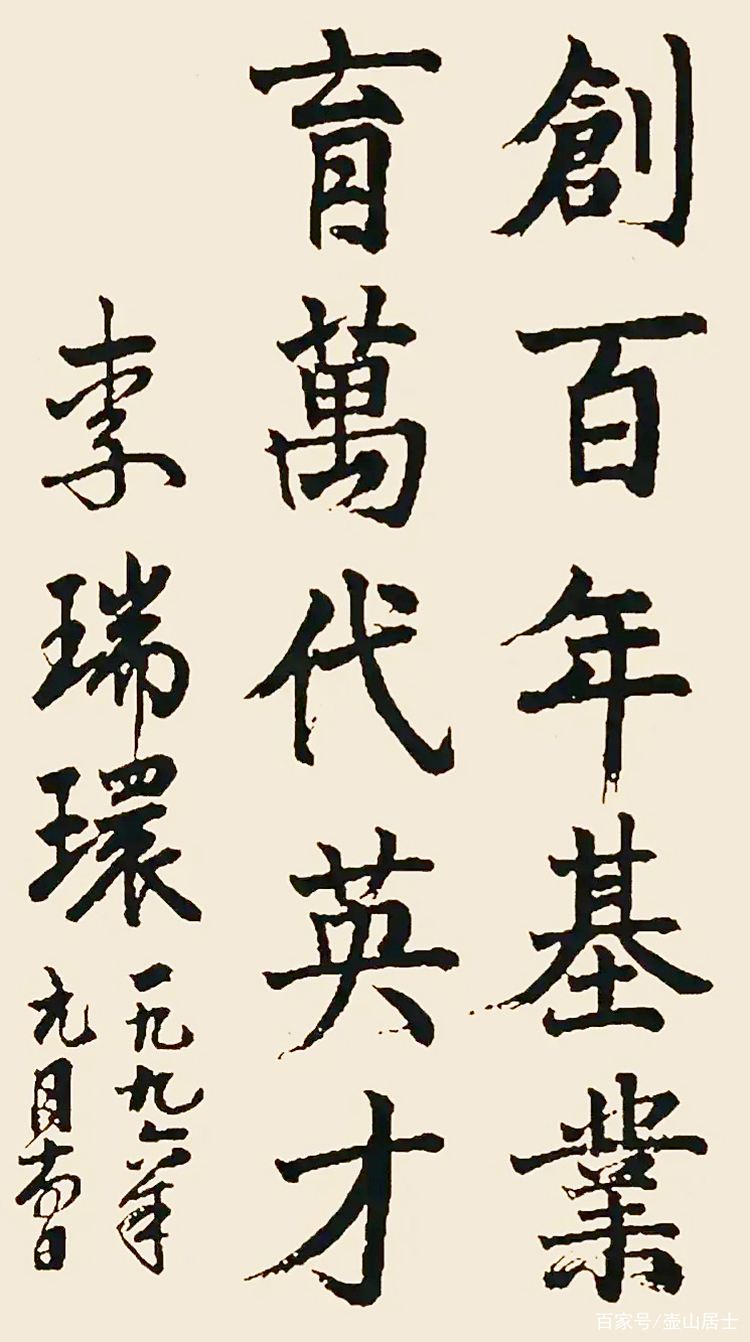 創百年基業
育萬代英才
李瑞環
一九九六年
九月日
百家号/壶山居士